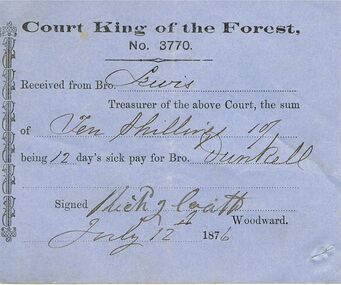 Court King of the Forest,
No. 3770.
Received from Bro. Lewis
Treasurer of the above Court, the sum
of Ten Shillings 10/
being 12 day's sick pay for Bro.
Signed
Woodward.
July 12th 1876